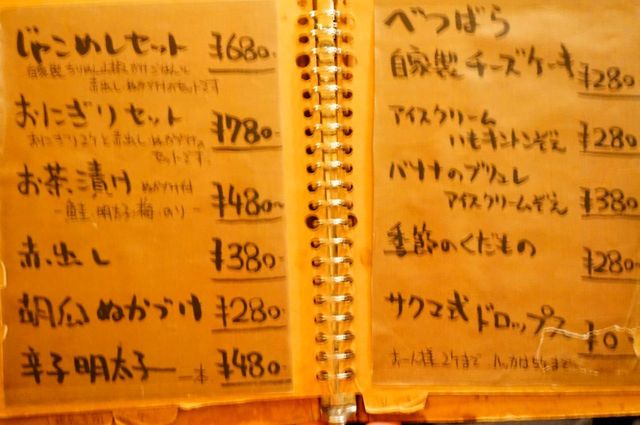 じゃこめしセット ¥680-
自家製ちりめん山椒かけごはんと
赤出し ぬか漬けのセットです
おにぎりセット ¥780-
おにぎり2ケと赤出し ぬか漬けの
セットです。
お茶漬け ぬか漬付 ¥480-
-鮭、明太子、梅、のり-
赤出し ¥380-
胡瓜ぬかづけ ¥280-
辛子明太子 一本 ¥480-
べつばら
自家製チーズケーキ ¥280-
アイスクリーム
いもキントンぞえ ¥280-
バナナのブリュレ
アイスクリームぞえ ¥380-
季節のくだもの ¥280-
サクマ式ドロップス ¥0-
お一人様2ケまで ハッカは5ケまで